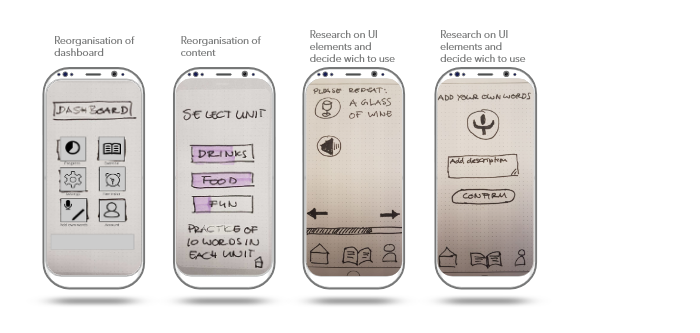 Reorganisation of
dashboard
DASHBOARD
Reorganisation of
content
SELECT UNIT
DRINKS
FOOD
FUN
PRACTICE OF
10 WORDS IN
EACH UNIT
Research on UI
elements and
decide wich to use
PLEASE REPEAT:
A GLASS
OF WINE
Research on UI
elements and
decide wich to use
ADD YOUR OWN WORDS
Add description
CONFIRM